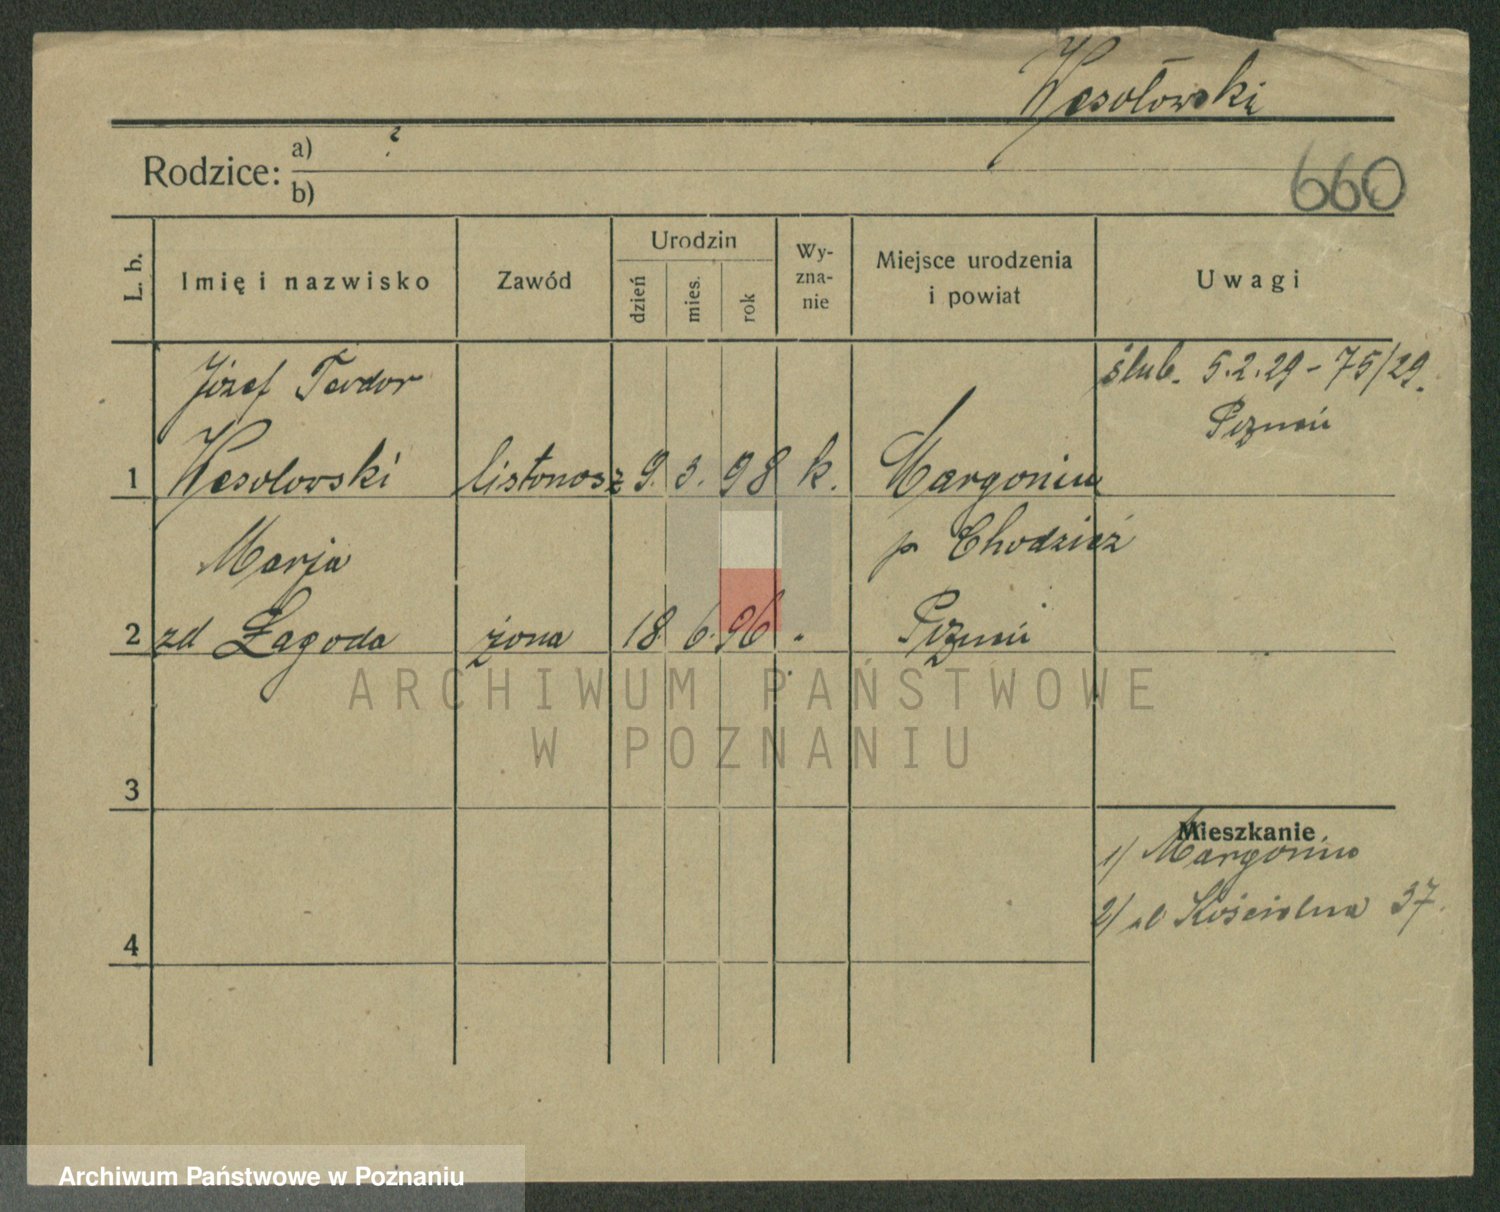 Wesołowski
Rodzice: a)
b)
660
L. b.
Imię i nazwisko
Zawód
Urodzin
dzień
mies.
rok
Wy-
zna-
nie
Miejsce urodzenia
i powiat
Uwagi
Józef Teodor
1 Wesołowski listonosz 9. 3. 98 k. Margonin
ślub. 5.2.29 - 75/29.
Poznań
Marja
p Chodzież
2 zd Łagoda żona 18 6. 96 Poznań
3
4
Mieszkanie
1/ Margonin
2/ Kościelna 37.
ARCHIWUM PAŃSTWOWE
W POZNANIU
Archiwum Państwowe w Poznaniu